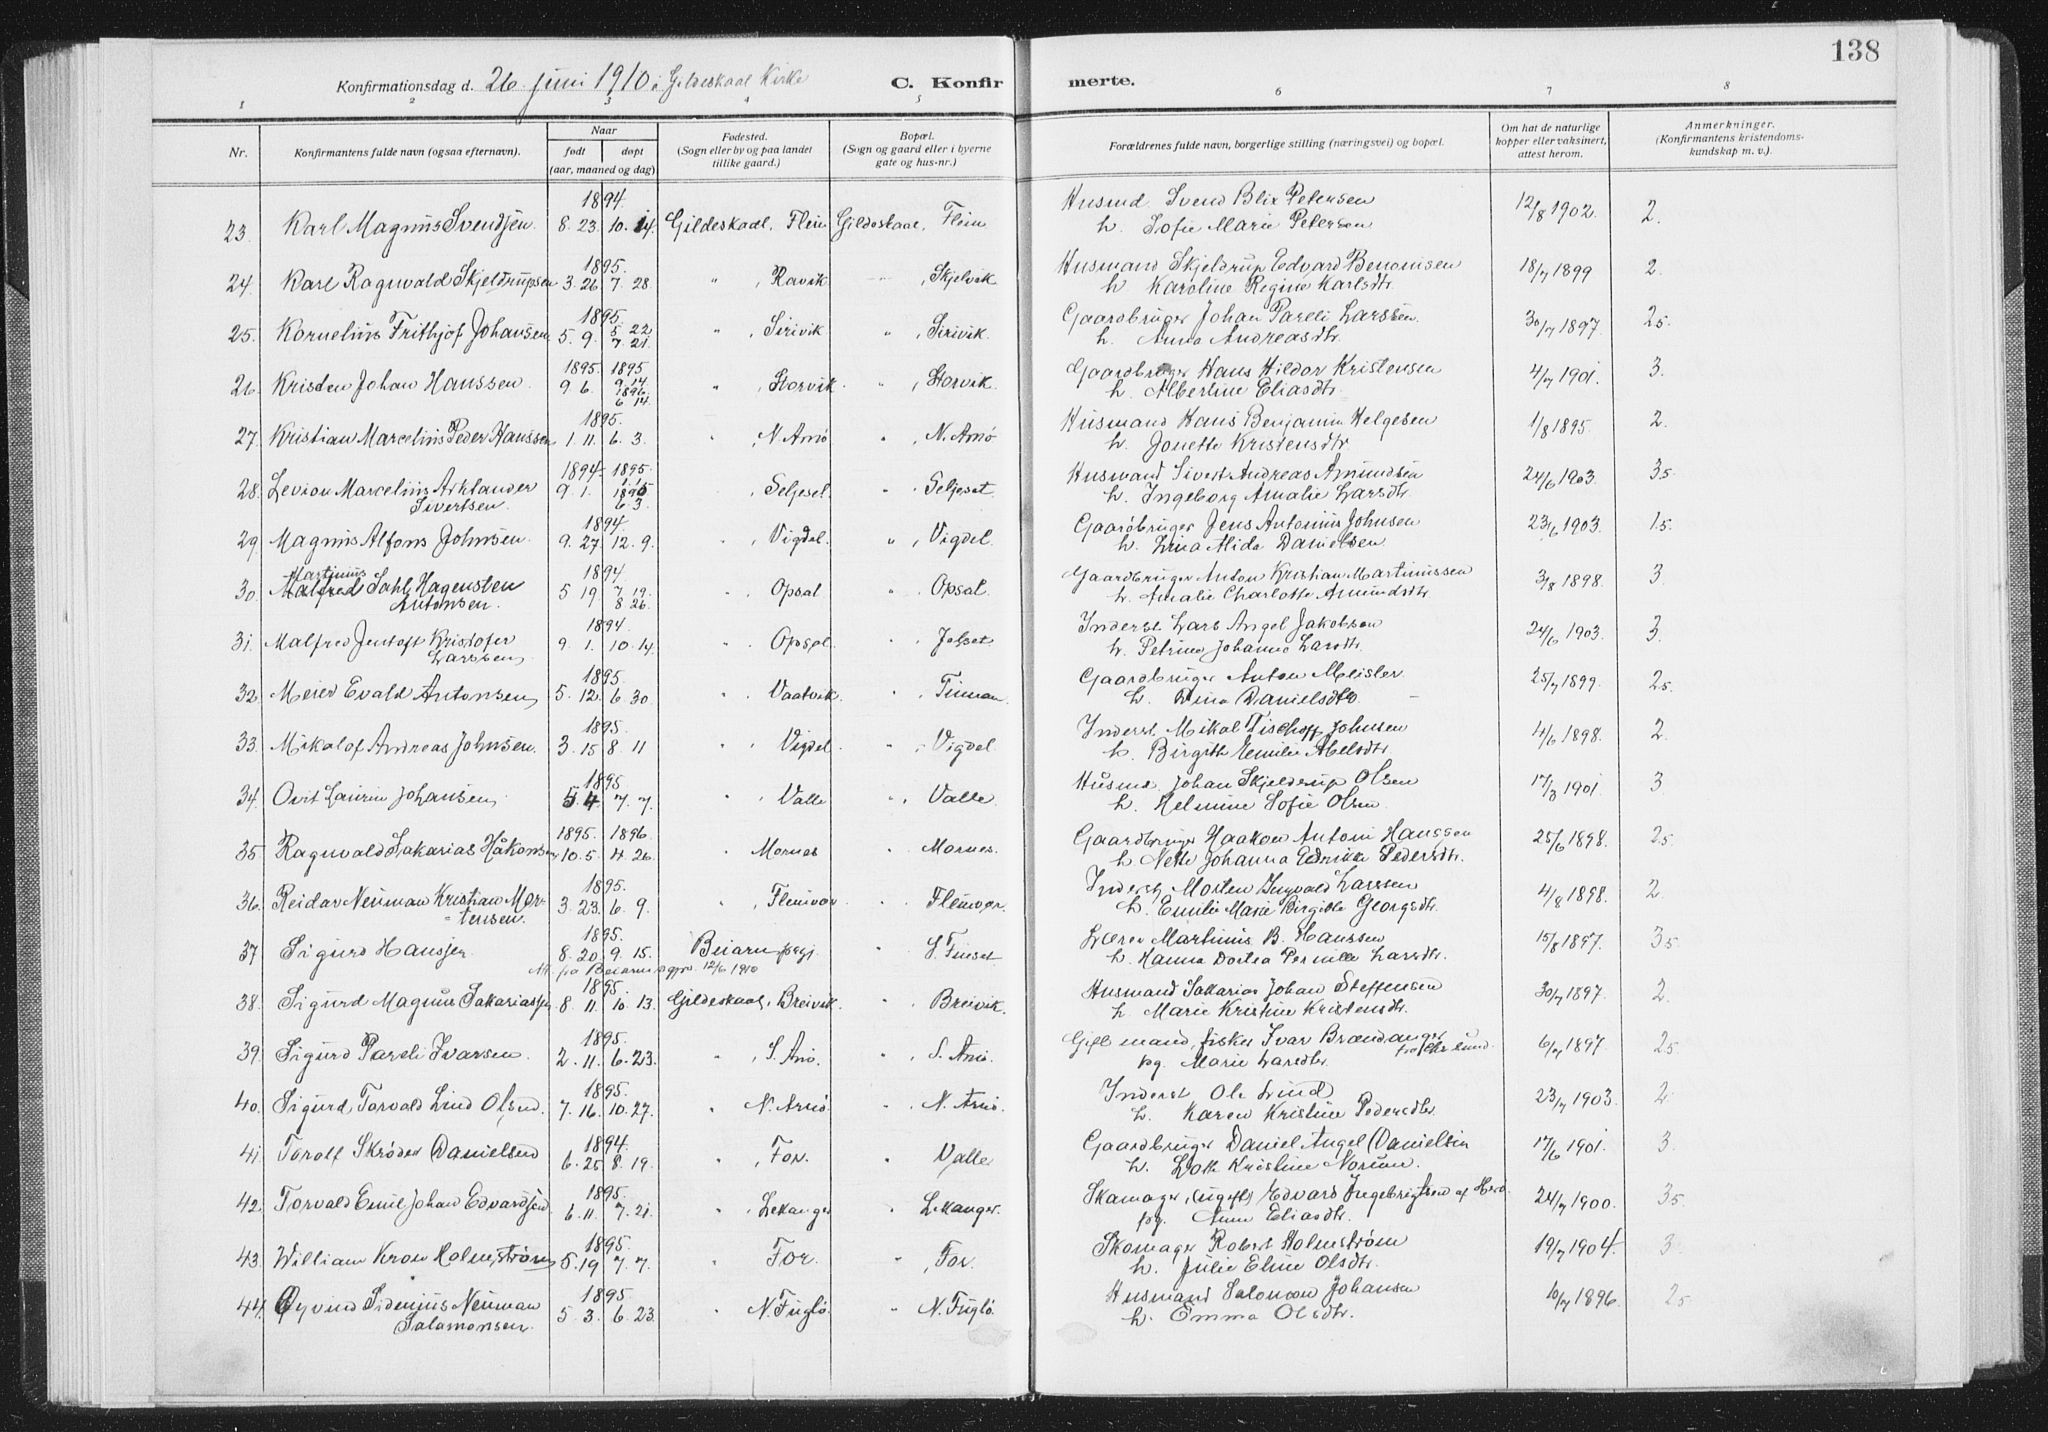 138
Konfirmationsdag d. 26 juni 1910 i Gildeskaal Kirke C. Konfirmerte.
1 2 3 4 5 6 7 8
Nr. Konfirmantens fulde navn (ogsaa efternavn). Naar født døpt (aar, maaned og dag) Fødested. (Sogn eller by og paa landet tillike gaard.) Bopæl. (Sogn og gaard eller i byerne gate og hus-nr.) Forældrenes fulde navn, borgerlige stilling (næringsvei) og bopæl. Om hat de naturlige kopper eller vaksinert, attest herom. Anmerkninger. (Konfirmantens kristendomskundskap m. v.).
1894 Husmd Svend Blix Petersen
23. Karl Magnus Svendsen. 8. 23. 10. 14. Gildeskaal, Flein Gildeskaal, Flein h. Sofie Marie Petersen 12/8 1902. 2.
1895. Husmand Skjeldrup Edvard Benonisen
24. Karl Ragnvald Skjeldrupsen 3. 26 7. 28 " , Ravik Skjelvik h. Karoline Regine Karlsdtr 18/7 1899 2.
1895. Gaardbruger Johan Pareli Larssen.
25. Kornelius Frithjof Johansen 5. 9. 5 22 7. 21. " , Sirivik " , Sirivik. h. Anna Andreasdtr. 30/7 1897. 2,5.
1895. 1895. Gaardbruger Hans Hildor Kristensen
26. Kristen Johan Hanssen. 9. 6. 9. 14 1896 6 14. " , Storvik. " , Storvik. h. Albertine Eliasdtr. 4/7 1901. 3.
1895. Husmand Hans Benjamin Helgesen
27. Kristian Marcelius Peder Hanssen 1. 11. 6. 3. " , N. Arnø " , N. Arnø h. Jonette Kristensdtr 1/8 1895. 2.
1894- 1895. Husmand Sivert Andreas Amundsen
28. Levion Marcelius Arklander Sivertsen. 9. 1. 1895 6 3. , Seljeset . Seljeset. h. Ingeborg Amalie Larsdtr. 24/6 1903. 3,5.
1894. Gaardbruger Jens Antonius Johnsen
29. Magnus Alfons Johnsen. 9. 27. 12. 9. , Vigdel. " , Vigdel. h. Lina Alida Danielsen 23/6 1903. 1,5.
Martinius 1894 Gaardbruger Anton Kristian Martinussen
30. Malfred Dahl Hagensten Antonsen. 5 19 7 19. 8 26. . Opsal . Opsal. h. Amalie Charlotte Amundsdtr 3/8 1898. 3.
1894. Inderst Lars Angel Jakobsen
31. Malfred Jentoft Kristofer Larssen 9. 1. 10. 14. . Opsal. Jelset h. Petrina Johanna Larsdtr. 24/6 1903. 3.
1895. Gaardbruger Anton Meisler
32. Meier Evald Antonsen 5. 12. 6 30 Vaatvik. h. Dina Danielsdtr. 25/7 1899. 2,5.
1895. Inderst Mikal Tischoff Johnsen
33. Mikalof Andreas Johnsen. 3. 15 8 11 , Vigdel. , Vigdel. h. Birgith Emilie Abelsdtr 4/6 1898. 2.
1895 Husmd. Johan Skjeldrup Olsen
34. Ovit Laurin Johansen 5. 4 7. 7. " , Valle " , Valle. h. Helmine Sofie Olsen. 17/3 1901. 3
1895. 1896. Gaardbruger Haakon Antoni Hanssen
35 Ragnvald Sakarias Håkonsen 10. 5. 4 26. Mornes Mornes. h. Nette Johanna Edrikke Pedersdtr. 25/6 1898. 2,5.
1895. Inderst Morten Ingvald Larssen
36. Reidar Neuman Kristian Mortensen. 3. 23. 6. 9. , Fleinvær Fleinvær. h. Emilie Marie Birgitte Georgsdtr. 4/8 1898. 2.
1895. Lærer Martinus B. Hanssen
37 Sigurd Hanssen 8. 20. 9. 15. Beiarn prgj. " S. Finset h. Hanna Dortea Pernille Larsdtr. 15/8 1897. 3,5.
Att. fra Beiarns sgpr. 12/6 1910
1895. Husmand Sakarias Johan Steffensen
38. Sigurd Magnus Sakariassen 8. 11. 10. 13. Gildeskaal, Breivik " Breivik. h. Marie Kristine Kristensdtr. 30/7 1897. 2.
1895. Gift mand, fisker Ivar Brandanger fra
39. Sigurd Pareli Ivarsen. 2. 11. 6. 23. " , S. Arnø. " , S. Arnø. pg. Marie Larsdtr 6/7 1897. 2,5
1895. Inderst Ole Lind
40. Sigurd Torvald Lind Olsen. 7. 16. 10. 27. " N. Arnø. " , N. Arnø. h. Karen Kristine Pedersdtr. 23/7 1903. 2.
1894. Gaardbruger Daniel Angel Danielsen
41. Torolf Skrøder Danielsen 6. 25 8. 19. " , For. " Valle h. Kristine Norum. 17/6 1901. 3.
1895. Skomager, (ugift) Edvard Ingebrigtsen af Herö.
42. Torvald Emil Johan Edvardsen 6. 11. 7. 21. " , Lekanger " Lekanger. pg. Anne Eliasdtr. 24/7 1900. 3,5.
1895. Skomager Robert Holmstrøm
43. William Kron Holmstrøm 5. 19 7. 7. " For. " , For. h. Julie Eline Olsdtr. 19/7 1904. 3
1895 Husmand Salomon Johansen
44. Øyvind Sidenius Neuman Salamonsen. 5 3. 6. 23. " N. Fuglø. " N. Fuglø h. Emma Olsdtr. 10/7 1896. 2,5